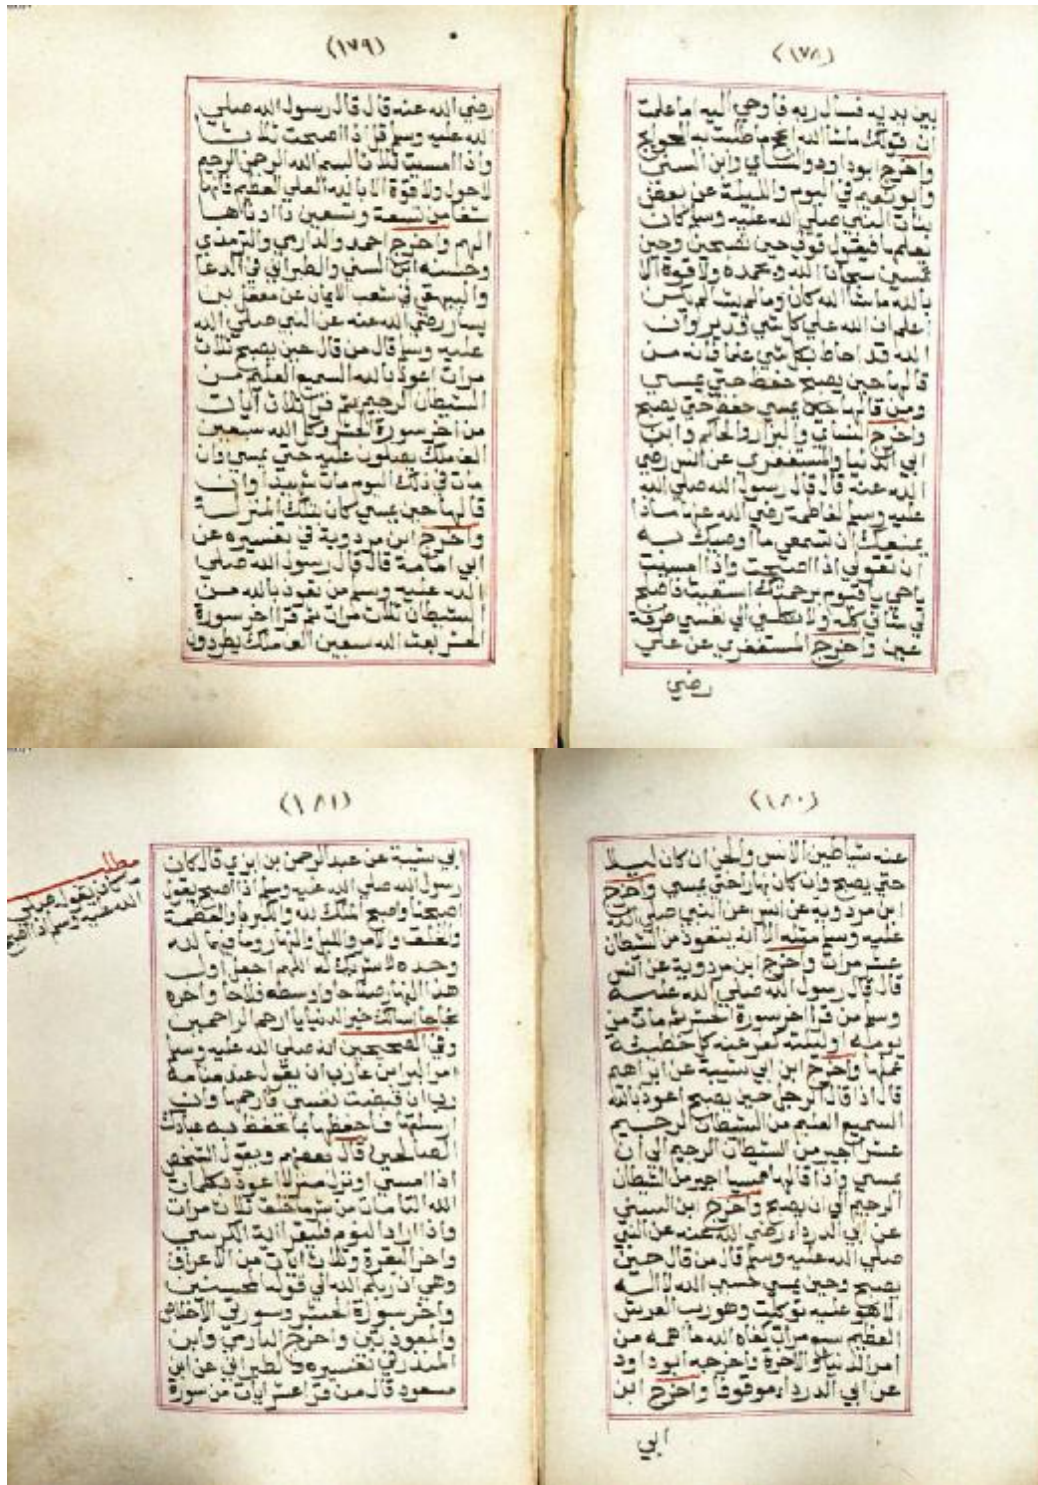 (١٧٨)
بين يديه فسأل ربه فأوحي اليه اما علمت
ان قولك ماشا الله انجح ما طلبت به الحوايج
واخرج ابوداود والنساي وابن السني
وابو نعيم في اليوم والليلة عن بعض
بنات النبي صلي الله عليه وسلم كان
يعلمها فيقول قولي حين تصبحين وحين
تمسين سبحان الله وبحمده ولا قوة الا
بالله ماشا الله كان ومالم يشا لم يكن
اعلم ان الله علي كل شي قدير وان
الله قد احاط بكل شي علما فانه من
قالها حين يصبح حفظ حتي يمسي
ومن قالها حين يمسي حفظ حتي يصبح
واخرج النساي والبزار والحاكم وابن
ابي الدنيا والمستغفري عن انس رضي
الله عنه قال قال رسول الله صلي الله
عليه وسلم لفاطمة رضي الله عنها ماذا
يمنعك ان تسمعي ما اوصيك به
ان تقولي اذا اصبحت واذا امسيت
ياحي ياقيوم برحمتك استغيث فاصلح
لي شاني كله ولا تكلني الي نفسي طرفة
عين واخرج المستغفري عن علي
رضي
(١٧٩)
رضي الله عنه قال قال رسول الله صلي
الله عليه وسلم قل اذا اصبحت ثلاثا
واذا امسيت ثلاث بسم الله الرحمن الرحيم
لاحول ولا قوة الا بالله العلي العظيم فانها
شفا من تسعة وتسعين داا ادناها
الهم واخرج احمد والدارمي والترمذي
وحسنه ابن السني والطبراني في الدعا
والبيهقي في شعب الايمان عن معقل بن
يسار رضي الله عنه عن النبي صلي الله
عليه وسلم قال من قال حين يصبح ثلاث
مرات اعوذ بالله السميع العليم من
الشيطان الرجيم ثم قرا ثلاث آيات
من اخر سورة الحشر وكل الله سبعين
الف ملك يصلون عليه حتي يمسي وان
مات في ذلك اليوم مات شهيدا وان
قالها حين يمسي كان بتلك المنزلة
واخرج ابن مردوية في تفسيره عن
ابي امامة قال قال رسول الله صلي
الله عليه وسلم من تعوذ بالله من
الشيطان ثلاث مرات ثم قرا اخر سورة
الحشر بعث الله سبعين الف ملك يطردون
(١٨٠)
عنه شياطين الانس والجن ان كان ليلا
حتي يصبح وان كان نهارا حتي يمسي واخرج
ابن مردويه عن انس عن النبي صلي الله
عليه وسلم مثله الا انه يتعوذ من الشيطان
عشر مرات واخرج ابن مردوية عن انس
قال قال رسول الله صلي الله عليه
وسلم من قرا اخر سورة الحشر ثم مات من
يومه او ليلته كفر عنه كل خطيئة
عملها واخرج ابن ابي شيبة عن ابراهيم
قال اذا قال الرجل حين يصبح اعوذ بالله
السميع العليم من الشيطان الرجيم
عشرا اجير من الشيطان الرجيم الي ان
يمسي واذا قالها ممسيا اجير من الشيطان
الرجيم الي ان يصبح واخرج ابن السني
عن ابي الدرداء رضي الله عنه عن النبي
صلي الله عليه وسلم قال من قال حين
يصبح وحين يمسي حسبي الله لا اله
الا هو عليه توكلت وهو رب العرش
العظيم سبع مرات كفاه الله ما اهمه من
امر الدنيا والاخرة واخرجه ابوداود
عن ابي الدرداء موقوفا واخرج ابن
ابي
(١٨١)
ابي شيبة عن عبدالرحمن بن ابزي قال كان
رسول الله صلي الله عليه وسلم اذا اصبح يقول
اصبحنا واصبح الملك لله والكبريا والعظمة
والخلق والامر والليل والنهار وما فيهما لله
وحده لا شريك له اللهم اجعل اول
هذا النهار صلاحا واوسطه فلاحا واخره
نجاحا اسالك خير الدنيا يا ارحم الراحمين
وفي الصحيحين انه صلي الله عليه وسلم
امر البرا بن عازب ان يقول عند منامه
رب ان قبضت نفسي فارحمها وان
ارسلتها فاحفظها بما تحفظ به عبادك
الصالحين قال بعضهم ويقول الشخص
اذا امسي او نزل منزلا اعوذ بكلمات
الله التامات من شر ما خلق ثلاث مرات
واذا اراد النوم فليقرا اية الكرسي
واخر البقرة وثلاث ايات من الاعراف
وهي ان ربكم الله الي قوله المحسنين
واخر سورة الحشر وسورتي الاخلاص
والمعوذتين واخرج الدارمي وابن
المنذر في تفسيره والطبراني عن ابن
مسعود قال من قرا عشر ايات من سورة
مطلب
ما كان يقوله صلي
الله عليه وسلم اذا اصبح